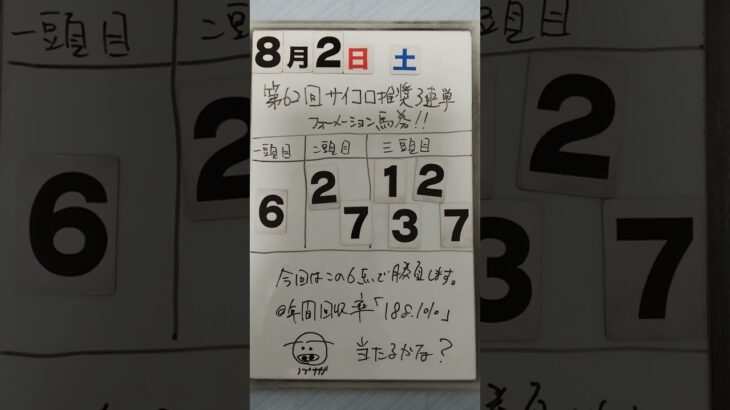 8月2日 土
第62回サイコロ推奨3連単
フォーメーション馬券!!
一頭目 二頭目 三頭目
6 2 7 1 2 3 7
今回はこの6点で勝負します。
@年間回収率「188.1%」
ブサガ
当たるかな?
一頭目
二頭目
三頭目
6
2
2
3
7